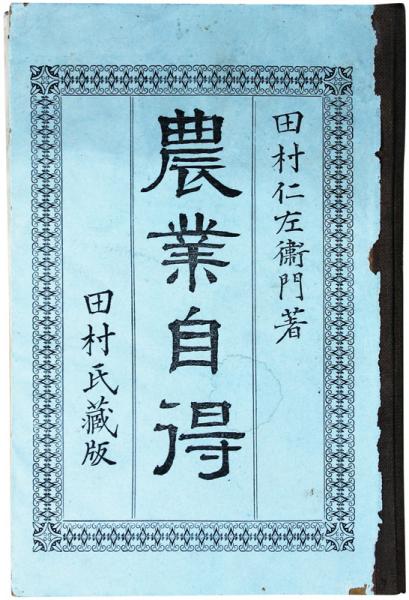 田村仁左衞門著
農業自得
田村氏藏版